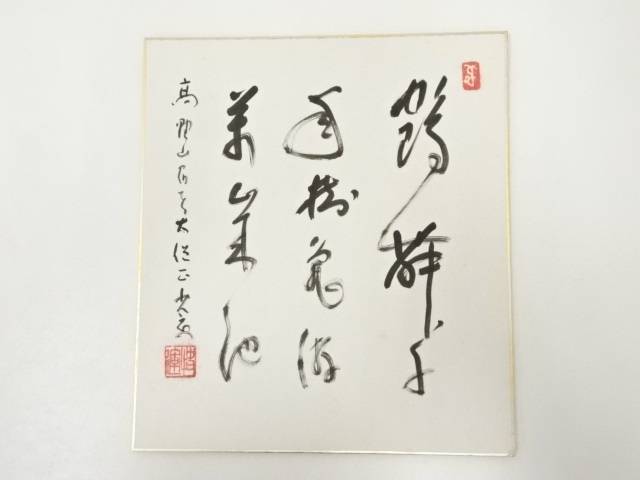 鶴舞千
年樹亀游
萬歳池
高野山
大僧正